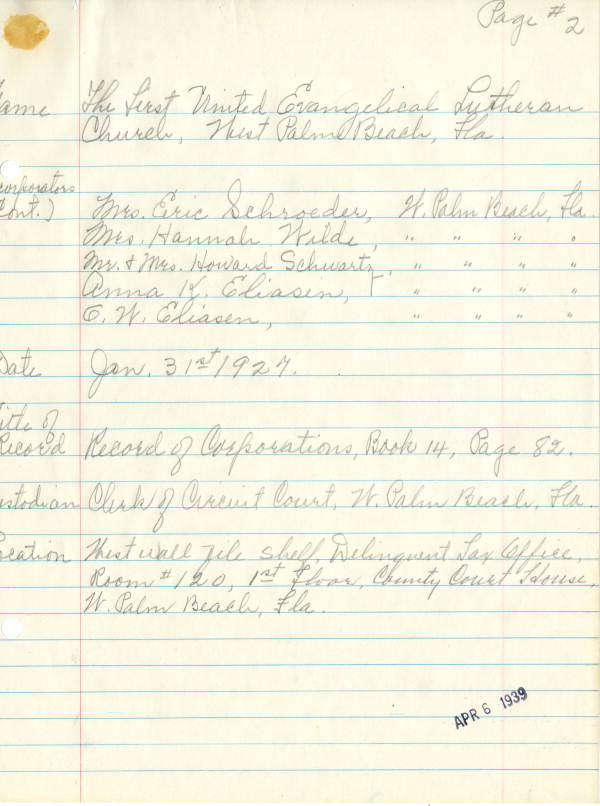 Page #2
ame The First United Evangelical Lutheran
Church, West Palm Beach, Fla.
corporators
Cont.) Mrs. Eric Schroeder, W. Palm Beach, Fla.
Mrs. Hannah Wilde, " " " "
Mr. & Mrs. Howard Schwartz, " " " "
Anna K. Eliasen, " " " "
C. W. Eliasen, " " " "
Date Jan. 31st 1927.
itle of
Record Record of Corporations, Book 14, Page 82.
ustodian Clerk of Circuit Court, W. Palm Beach, Fla.
ocation West wall file shelf, Delinquent Tax Office,
Room #120, 1st Floor, County Court House,
W. Palm Beach, Fla.
APR 6 1939